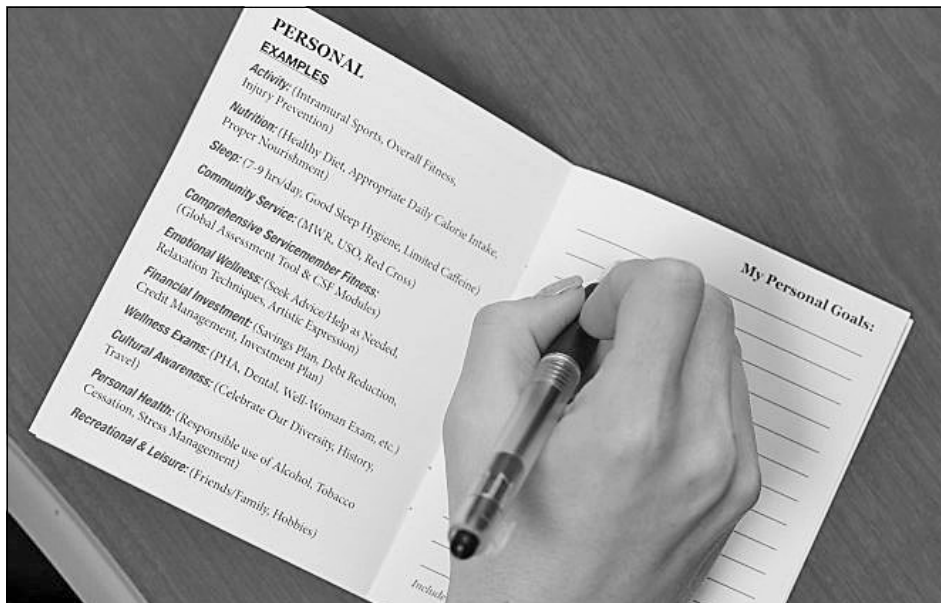 PERSONAL
EXAMPLES
Activity: (Intramural Sports, Overall Fitness,
Injury Prevention)
Nutrition: (Healthy Diet, Appropriate Daily Calorie Intake,
Proper Nourishment)
Sleep: (7-9 hrs/day, Good Sleep Hygiene, Limited Caffeine)
Community Service: (MWR, USO, Red Cross)
Comprehensive Servicemember Fitness:
(Global Assessment Tool & CSF Modules)
Emotional Wellness: (Seek Advice/Help as Needed,
Relaxation Techniques, Artistic Expression)
Financial Investment: (Savings Plan, Debt Reduction,
Credit Management, Investment Plan)
Wellness Exams: (PHA, Dental, Well-Woman Exam, etc.)
Cultural Awareness: (Celebrate Our Diversity, History,
Travel)
Personal Health: (Responsible use of Alcohol, Tobacco
Cessation, Stress Management)
Recreational & Leisure: (Friends/Family, Hobbies)
My Personal Goals:
Include